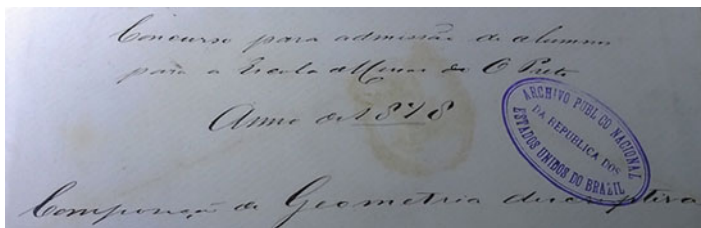 Concurso para admissão de alumnos
para a Escola de Minas de O Preto
Anno de 1878
ARCHIVO PUBLICO NACIONAL
DA REPUBLICA DOS
ESTADOS UNIDOS DO BRAZIL
Composição de Geometria descriptiva